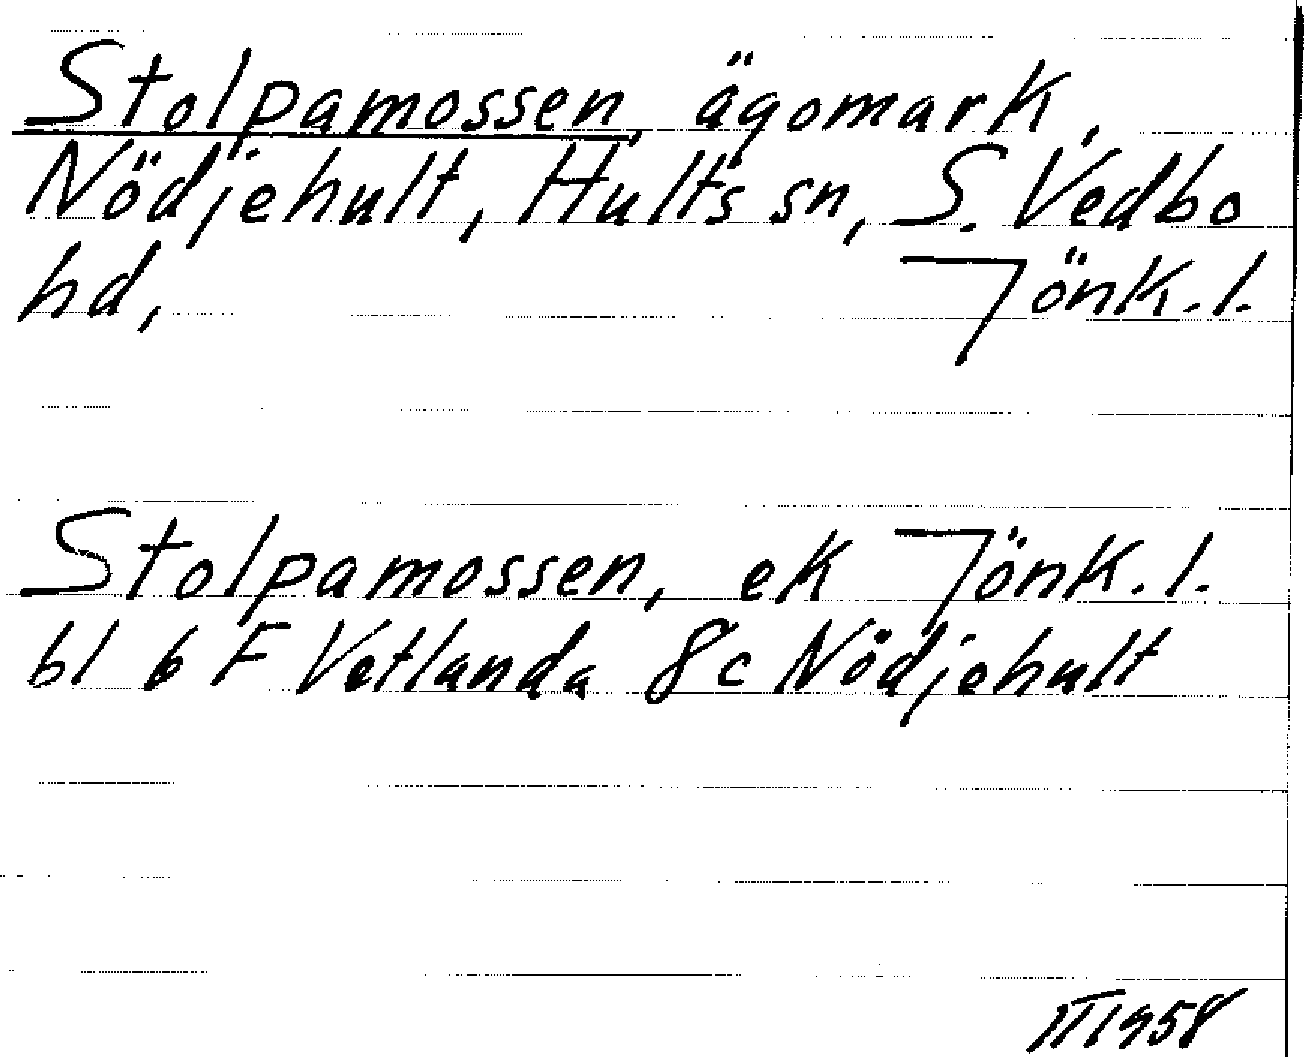 Stolpamossen, ägomark,
Nödjehult, Hults sn, S. Vedbo
hd, Jönk.l.
Stolpamossen, ek Jönk.l.
bl 6 F Vetlanda 8c Nödjehult